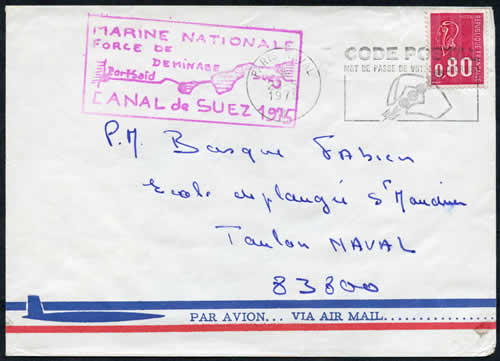 MARINE NATIONALE
FORCE DE
DEMINAGE
PortSaïd
Suez
CANAL de SUEZ 1975
PARIS NAVAL
1975
CODE POSTAL
MOT DE PASSE DE VOTRE
REPUBLIQUE FRANÇAISE
0,80
P.M. Basque Fabien
Ecole de plongée St Mandrier
Toulon NAVAL
83800
PAR AVION... VIA AIR MAIL...